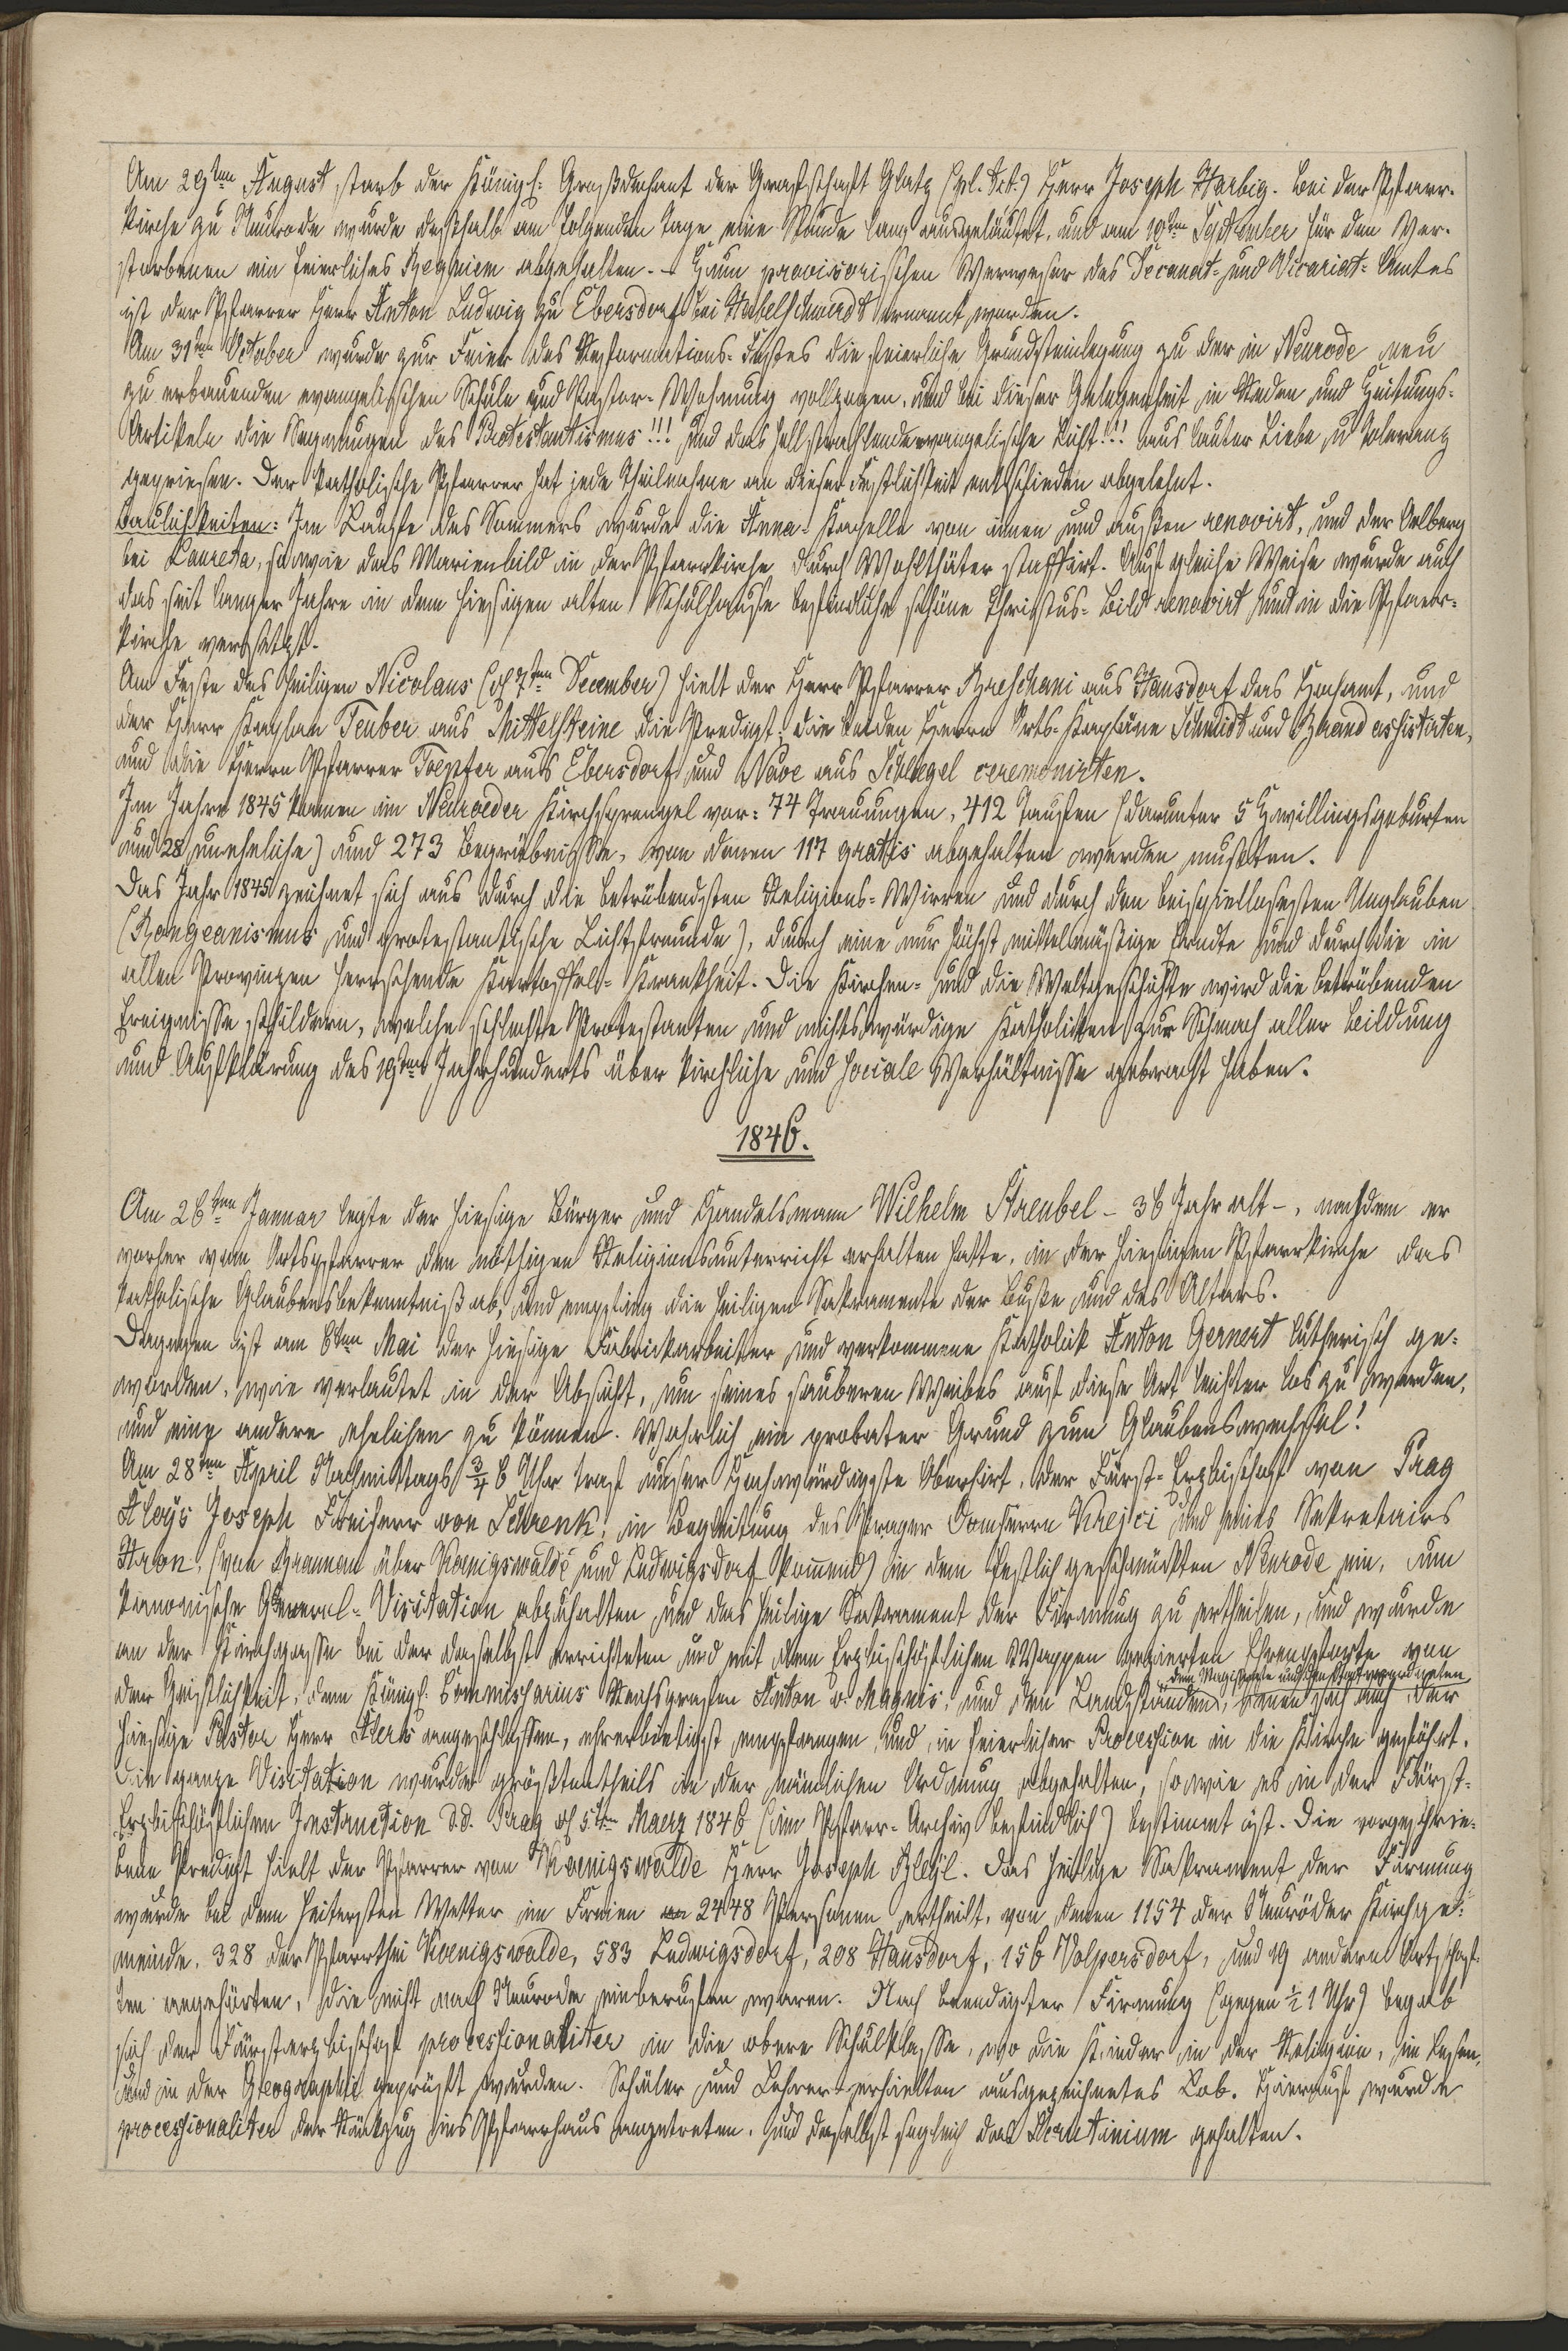 Am 29ten August starb der Königl: Großdechant der Grafschaft Glatz (pl. tit.) Herr Joseph Harbig. Bei der Pfarr-
kirche zu Neurode wurde deshalb am folgenden Tage eine Stunde lang ausgeläutet, und am 10ten September für den Ver-
storbenen ein feierliches Requiem abgehalten. - Zum provisorischen Verweser des Decanat- und Vicariat- Amtes
ist der Pfarrer Herr Anton Ludwig zu Ebersdorf bei Habelschwerdt ernannt worden.
Am 31ten October wurde zur Feier des Reformations- Festes die feierliche Grundsteinlegung zu der in Neurode neu
zu erbauenden evangelischen Schule und Pastor- Wohnung vollzogen, und bei dieser Gelegenheit in Reden und Zeitungs-
Artikeln die Segnungen des Protestantismus!!! und das hellstrahlende evangelische Licht!!! aus lauter Liebe u Toleranz
gepriesen. Der katholische Pfarrer hat jede Theilnahme an dieser Festlichkeit entschieden abgelehnt.
Baulichkeiten: Im Laufe des Sommers wurde die Anna- Kapelle von innen und außen renovirt, und der Oelberg
bei Loureta, sowie das Marienbild in der Pfarrkirche durch Wohlthäter staffirt. Auf gleiche Weise wurde auch
das seit langer Jahre in dem hiesigen alten Schulhause befindliche schöne Christus- Bild renovirt und in die Pfarr-
kirche versetzt.
Am Feste des heiligen Nicolaus (d 7ten December) hielt der Herr Pfarrer Breschani aus Hausdorf das Hochamt, und
der Herr Kaplan Teuber aus Mittelsteine die Predigt; die beiden Herrn Orts- Kapläne Schmidt und Brand assistirten,
und die Herrn Pfarrer Toepfer aus Ebersdorf und Nave aus Schlegel ceremonirten.
Im Jahre 1845 kamen im Neuroeder Kirchsprengel vor: 74 Trauungen, 412 Taufen (darunter 5 Zwillingsgeburten
und 28 uneheliche) und 273 Begräbnisse, von denen 117 gratis abgehalten werden mußten.
Das Jahr 1845 zeichnet sich aus durch die betrübendsten Religions- Wirren und durch den beispiellosesten Unglauben
(Rongeanismus und protestantische Lichtfreunde), durch eine nur höchst mittelmäßige Erndte und durch die in
allen Provinzen herrschende Kartoffel- Krankheit. Die Kirchen- und die Weltgeschichte wird die betrübenden
Ereignisse schildern, welche schlechte Protestanten und nichtswürdige Katholiken zur Schmach aller Bildung
und Aufklärung des 19ten Jahrhunderts über kirchliche und sociale Verhältnisse gebracht haben.
1846.
Am 26ten Januar legte der hiesige Bürger und Handelsmann Wilhelm Streubel - 36 Jahr alt -, nachdem er
vorher vom Ortspfarrer den nöthigen Religionsunterricht erhalten hatte, in der hiesigen Pfarrkirche das
katholische Glaubensbekenntniß ab, und empfing die heiligen Sakramente der Buße und des Altars.
Dagegen ist am 8ten Mai der hiesige Fabrikarbeiter und verkommene Katholik Anton Gernert lutherisch ge-
worden, wie verlautet in der Absicht, um seines sauberen Weibes auf diese Art leichter los zu werden,
und eine andere ehelichen zu können. Wahrlich ein probater Grund zum Glaubenswechsel!
Am 28ten April Nachmittags 3/4 6 Uhr traf unser Hochwürdigste Oberhirt, der Fürst- Erzbischof von Prag
Aloys Joseph Freiherr von Schrenk, in Begleitung des Prager Domherrn Krejci und seines Sekretairs
Hron, (von Braunau über Koenigswalde und Ludwigsdorf kom̄end) in dem festlich geschmückten Neurode ein, um
kanonische General- Visitation abzuhalten und das heilige Sakrament der Firmung zu ertheilen, und wurde
an der Kirchgasse bei der daselbst errichteten und mit dem Erzbischöflichen Wappen gezierten Ehrenpforte von
der Geistlichkeit, dem Königl. Commissarius Reichsgrafen Anton v. Magnis, und den Landständen, denen sich auch der
dem Magistrate und den Stadtverordneten
hiesige Pastor Herr angeschlossen, ehrerbietigst empfangen, und in feierlicher Procession in die Kirche geführt.
Die ganze Visitation wurde größtentheils in der nämlichen Ordnung abgehalten, so wie es in der Fürst-
Erzbischöflichen Instruction d.d. Prag d 5ten Maerz 1846 (im Pfarr- Archiv befindlich) bestimmt ist. Die vorgeschrie-
bene Predigt hielt der Pfarrer von Koenigswalde Herr Joseph Pleyl. Das heilige Sakrament der Firmung
wurde bei dem heitersten Wetter im Freien 2448 Personen ertheilt, von denen 1154 der Neuröder Kirchge-
meinde, 328 der Pfarrthei Koenigswalde, 583 Ludwigsdorf, 208 Hausdorf, 156 Volpersdorf, und 19 andern Ortschaf-
ten angehörten, die nicht nach Neurode einberufen waren. Nach beendigter Firmung (gegen 1/2 1 Uhr) begab
sich der Fürsterzbischof processionaliter in die obere Schulklasse, wo die Kinder in der Religion, im Lesen,
und in der Geographie geprüft wurden. Schüler und Lehrer erhielten ausgezeichnetes Lob. Hierauf wurde
processionaliter der Rückzug ins Pfarrhaus angetreten, und daselbst sogleich das Scrutinium gehalten.